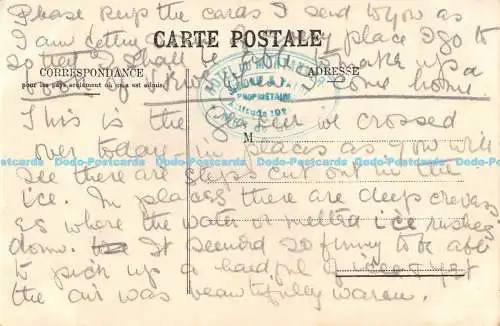 Please keep the cards I send to you as
I am getting some of every place I go to
so that I shall be able to make up a
when I come home.
CARTE POSTALE
CORRESPONDANCE
pour les pays seulement où cela est admis.
ADRESSE
PROPRIÉTAIRE
M
This is the glacier we crossed
over today — in places as you will
see there are steps cut out in the
ice. In places there are deep crevass
es where the water or melted ice rushes
down. It seemed so funny to be able
to pick up a handful of ice & yet
the air was beautifully warm.
Dodo-Postcards Dodo-Postcards Dodo-Postcards Dodo-Postcards Dodo-Postcards